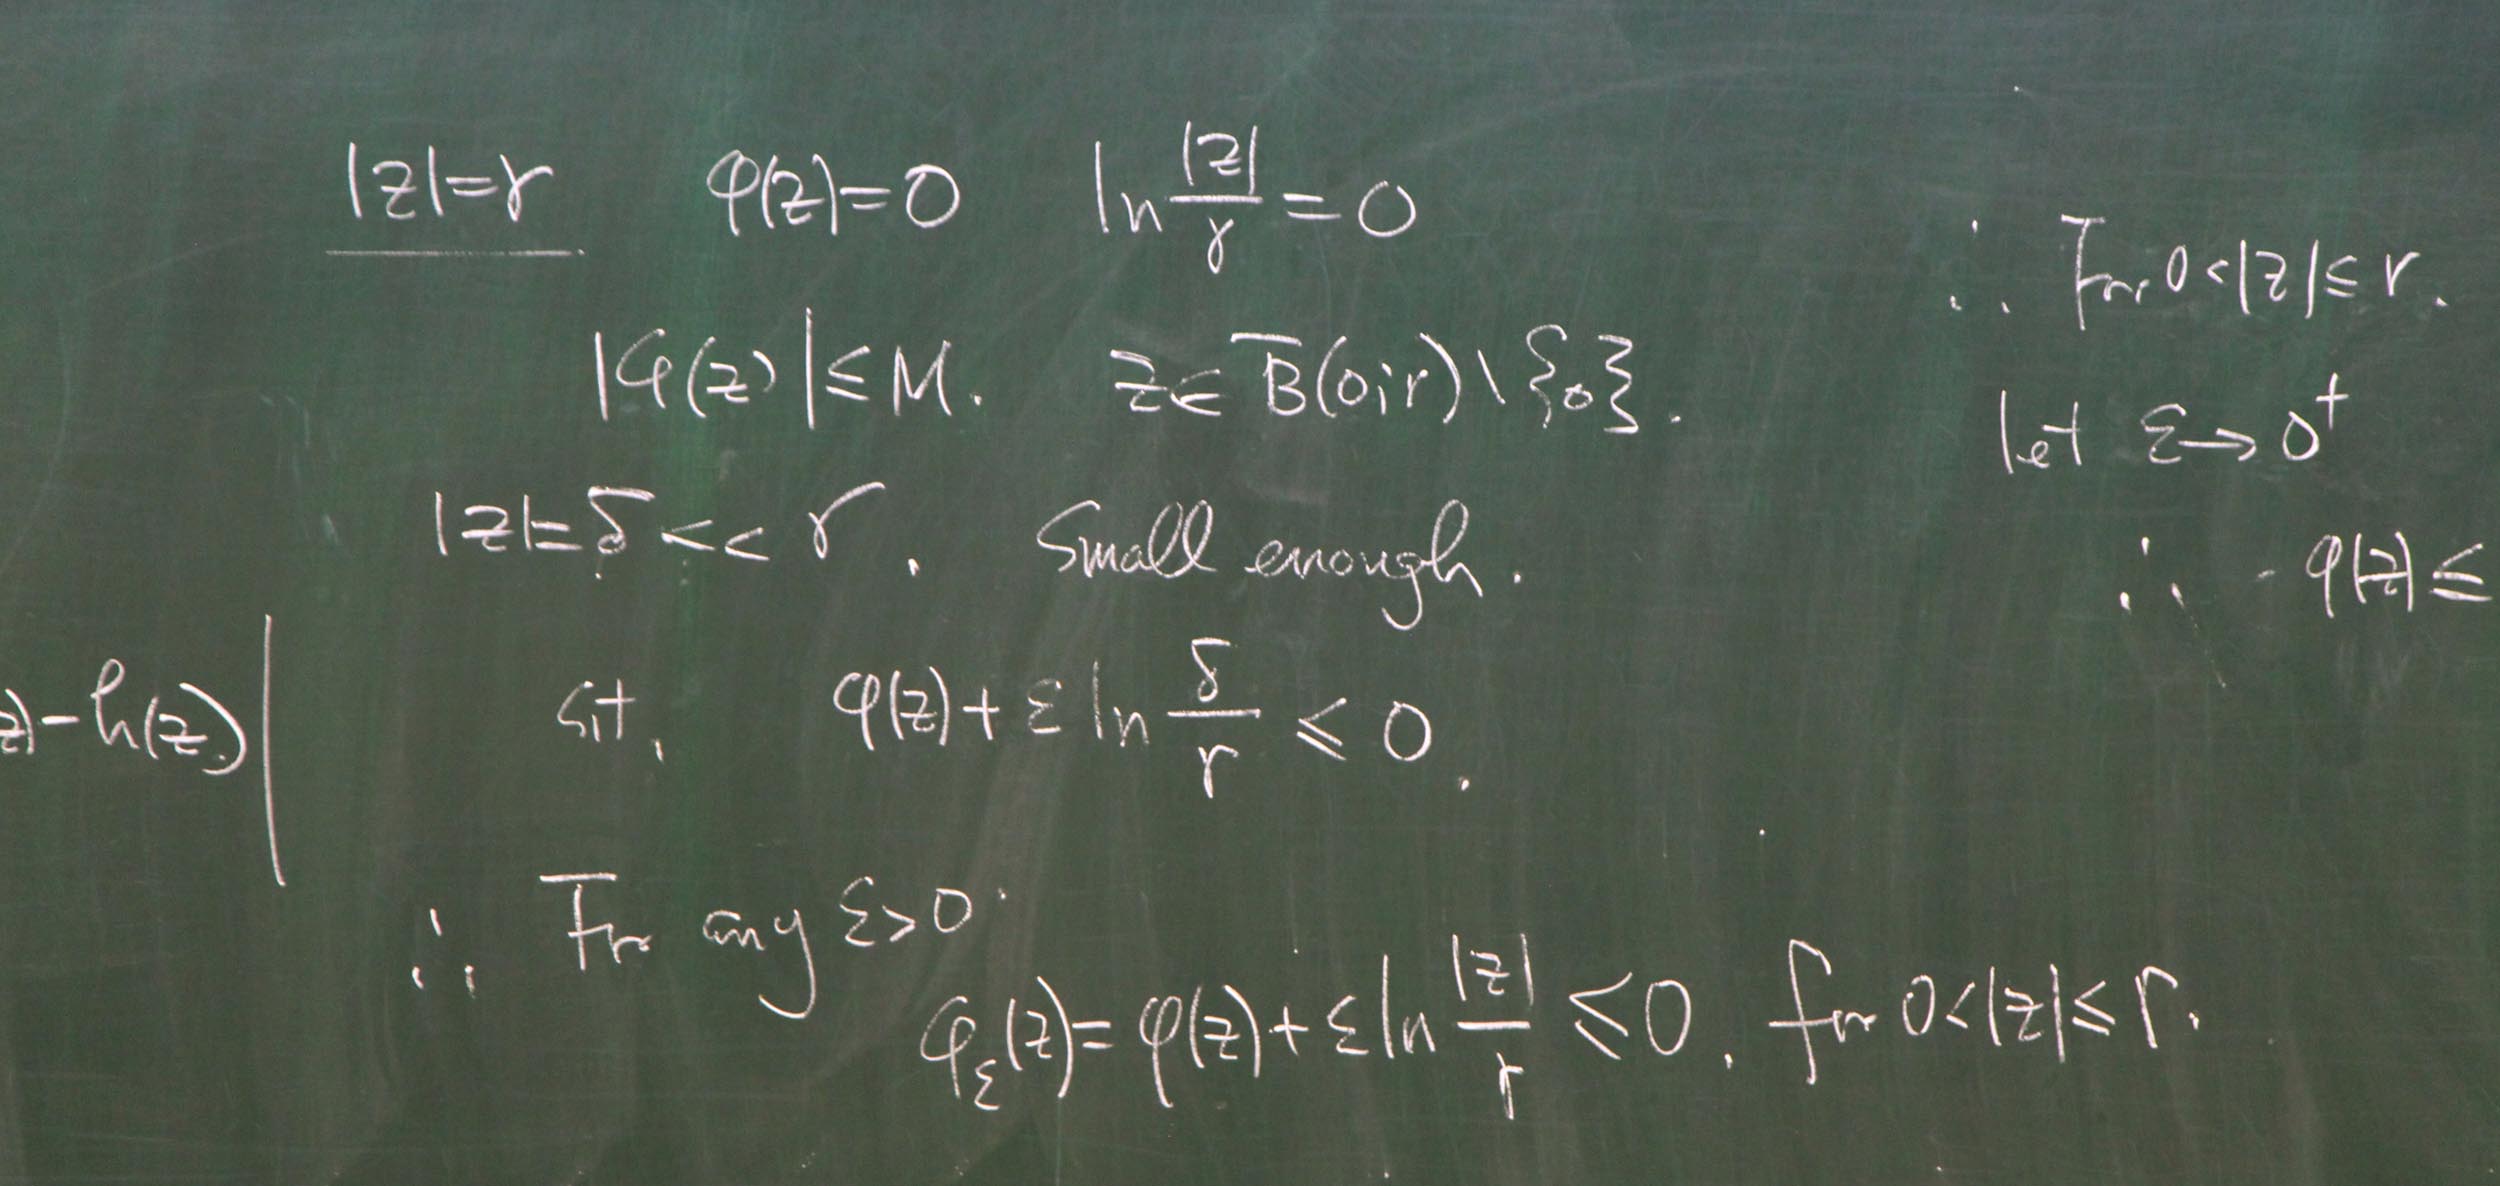 |z|=r φ(z)=0 ln |z|/r = 0
|φ(z)|≤M. z∈B̅(0;r)\{0}.
|z|=δ<<r. Small enough.
s.t. φ(z)+ε ln δ/r ≤ 0.
∴ For any ε>0.
φ_ε(z)=φ(z)+ε ln |z|/r ≤0. for 0<|z|≤r.
z)-h(z)|
∴ For 0<|z|≤r.
let ε→0⁺
∴ φ(z)≤